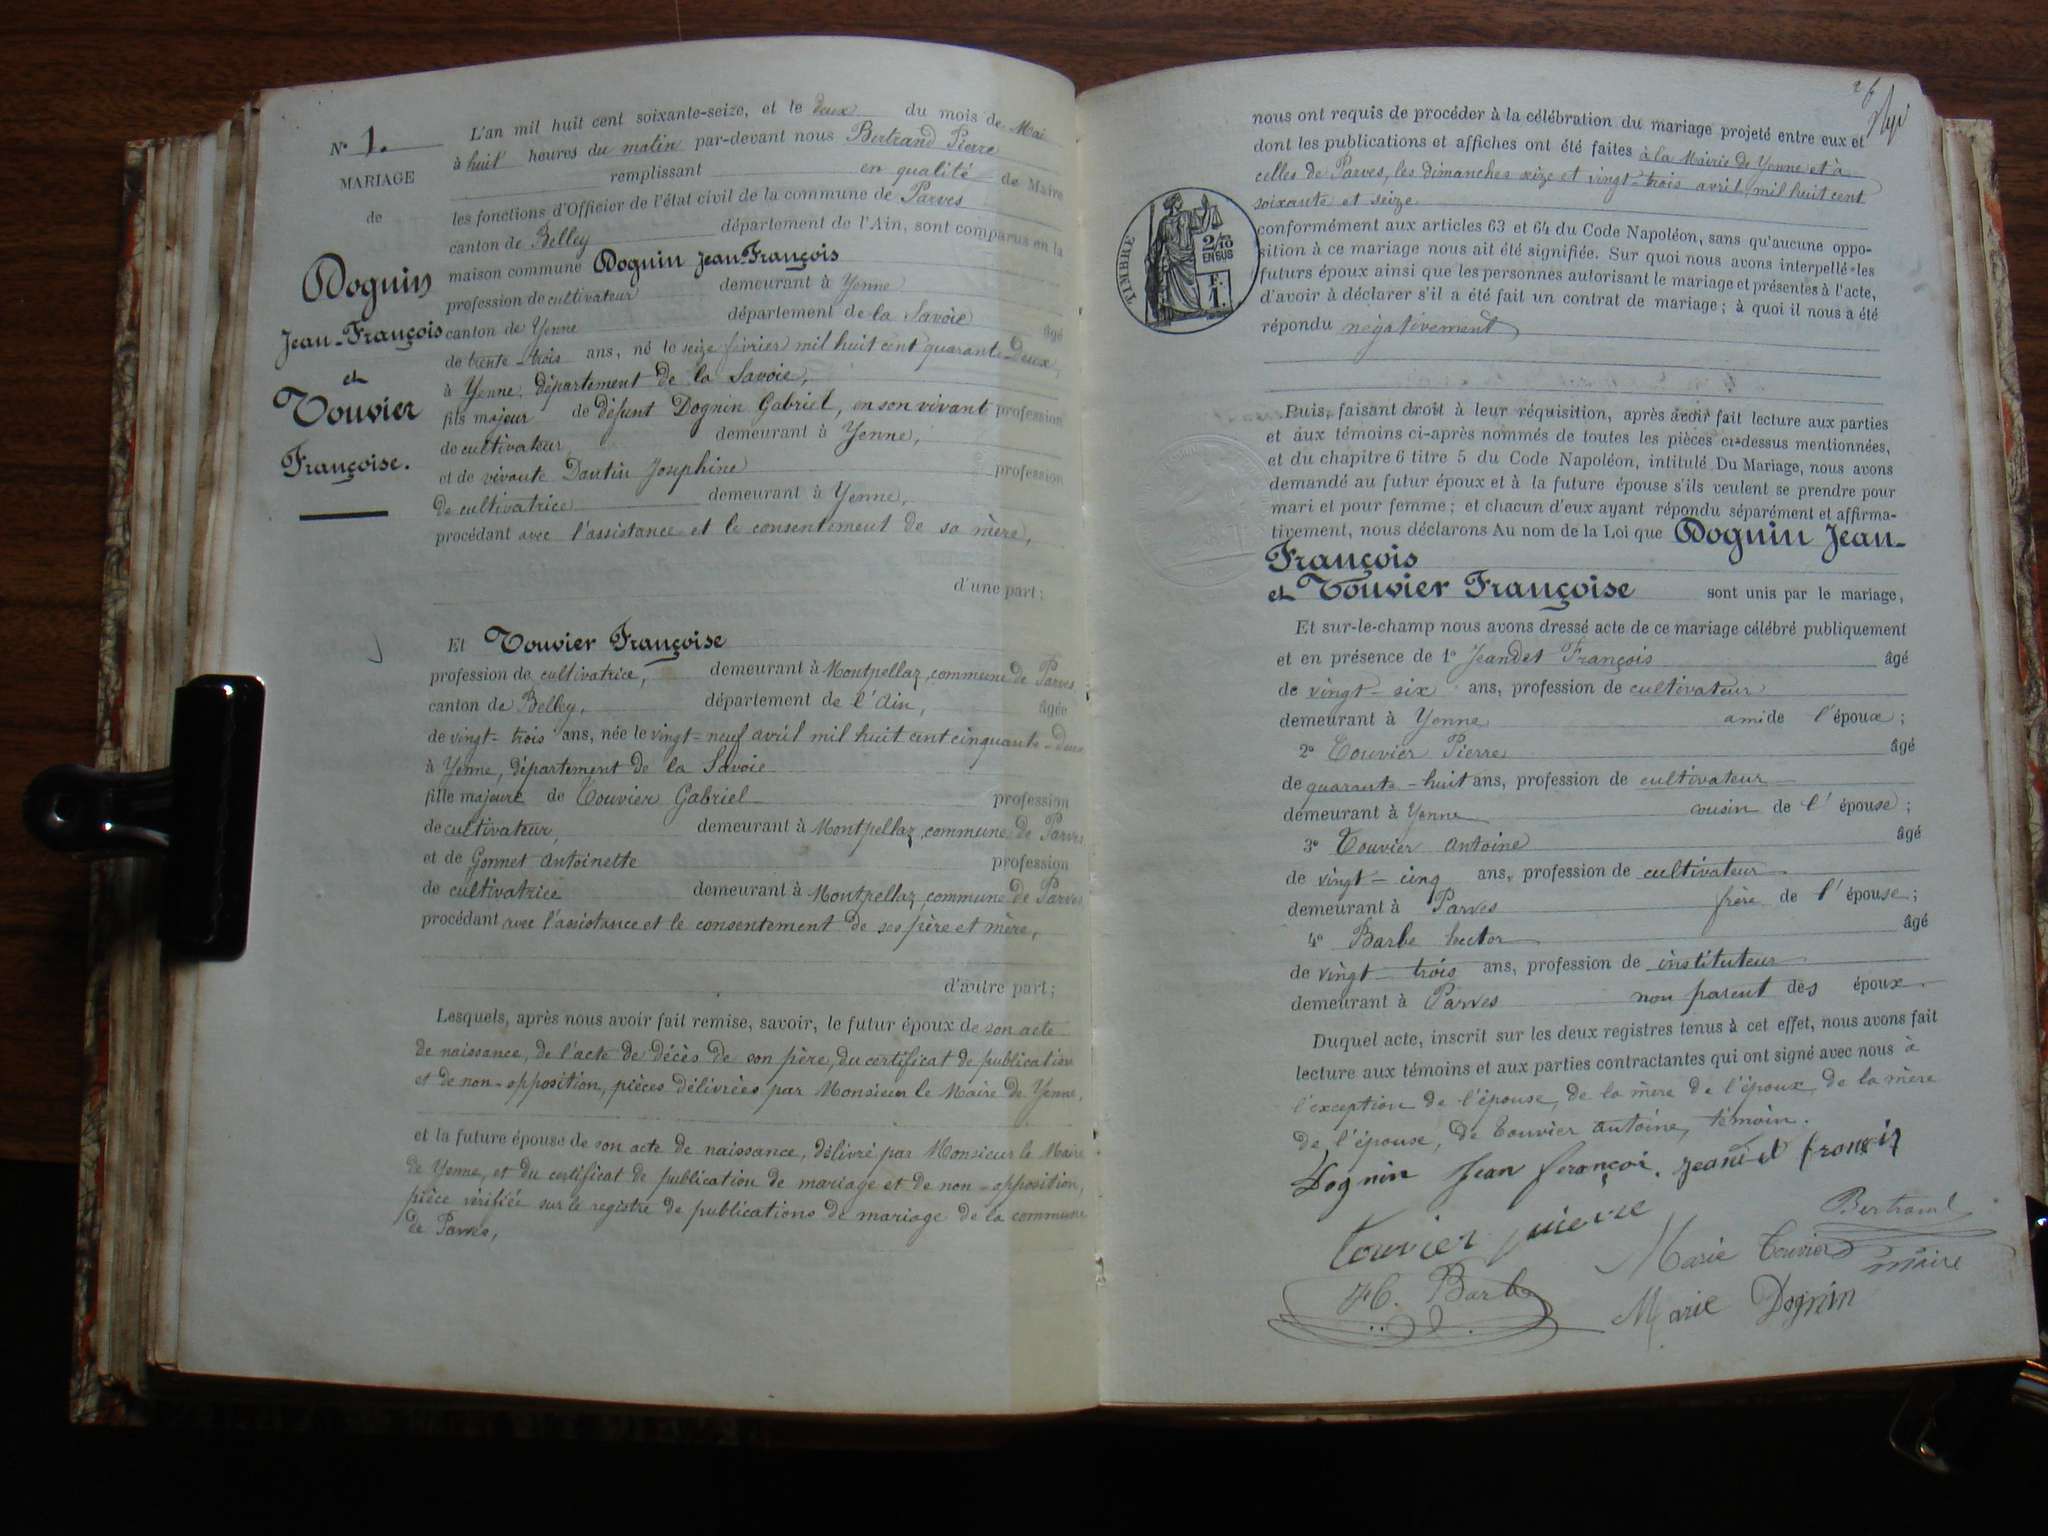 N° 1.
MARIAGE
de
Dognin
Jean-François
et
Touvier
Françoise.
L'an mil huit cent soixante-seize, et le deux du mois de Mai
à huit heures du matin par-devant nous Bertrand Pierre
remplissant en qualité de Maire
les fonctions d'Officier de l'état civil de la commune de Parves
canton de Belley département de l'Ain, sont comparus en la
maison commune Dognin Jean-François
profession de cultivateur demeurant à Yenne
canton de Yenne département de la Savoie âgé
de trente-trois ans, né le seize février mil huit cent quarante-deux,
à Yenne, département de la Savoie,
fils majeur de défunt Dognin Gabriel, en son vivant profession
de cultivateur, demeurant à Yenne,
et de vivante Dantin Josephine profession
de cultivatrice demeurant à Yenne,
procédant avec l'assistance et le consentement de sa mère,
d'une part;
Et Touvier Françoise
profession de cultivatrice, demeurant à Montpellaz, commune de Parves
canton de Belley, département de l'Ain, âgée
de vingt-trois ans, née le vingt-neuf avril mil huit cent cinquante-deux
à Yenne, département de la Savoie
fille majeure de Touvier Gabriel profession
de cultivateur, demeurant à Montpellaz, commune de Parves
et de Gonnet Antoinette profession
de cultivatrice demeurant à Montpellaz, commune de Parves
procédant avec l'assistance et le consentement de ses père et mère,
d'autre part;
Lesquels, après nous avoir fait remise, savoir, le futur époux de son acte
de naissance, de l'acte de décès de son père, du certificat de publication
et de non-opposition, pièces délivrées par Monsieur le Maire de Yenne,
et la future épouse de son acte de naissance, délivré par Monsieur le Maire
de Yenne, et du certificat de publication de mariage et de non-opposition,
pièce vérifiée sur le registre de publications de mariage de la commune
de Parves,
26
nous ont requis de procéder à la célébration du mariage projeté entre eux et
dont les publications et affiches ont été faites à la Mairie de Yenne et à
celles de Parves, les dimanches seize et vingt-trois avril, mil huit cent
soixante et seize
conformément aux articles 63 et 64 du Code Napoléon, sans qu'aucune oppo-
sition à ce mariage nous ait été signifiée. Sur quoi nous avons interpellé les
futurs époux ainsi que les personnes autorisant le mariage et présentes à l'acte,
d'avoir à déclarer s'il a été fait un contrat de mariage; à quoi il nous a été
répondu négativement
TIMBRE
2/10
EN SUS
F.
1.
Puis, faisant droit à leur réquisition, après avoir fait lecture aux parties
et aux témoins ci-après nommés de toutes les pièces ci-dessus mentionnées,
et du chapitre 6 titre 5 du Code Napoléon, intitulé Du Mariage, nous avons
demandé au futur époux et à la future épouse s'ils veulent se prendre pour
mari et pour femme; et chacun d'eux ayant répondu séparément et affirma-
tivement, nous déclarons Au nom de la Loi que Dognin Jean-
François
et Touvier Françoise sont unis par le mariage,
Et sur-le-champ nous avons dressé acte de ce mariage célébré publiquement
et en présence de 1° Jeandet François âgé
de vingt-six ans, profession de cultivateur
demeurant à Yenne ami de l'époux;
2° Touvier Pierre âgé
de quarante-huit ans, profession de cultivateur
demeurant à Yenne cousin de l'épouse;
3° Touvier Antoine âgé
de vingt-cinq ans, profession de cultivateur
demeurant à Parves frère de l'épouse;
4° Barbe hector âgé
de vingt-trois ans, profession de instituteur
demeurant à Parves non parent des époux.
Duquel acte, inscrit sur les deux registres tenus à cet effet, nous avons fait
lecture aux témoins et aux parties contractantes qui ont signé avec nous à
l'exception de l'épouse, de la mère de l'époux, de la mère
de l'épouse, de Touvier Antoine, témoin.
Dognin Jean françois. jeandet françois
Bertrand
touvier pierre
Marie Touvier
maire
H. Barbe
Marie Dognin